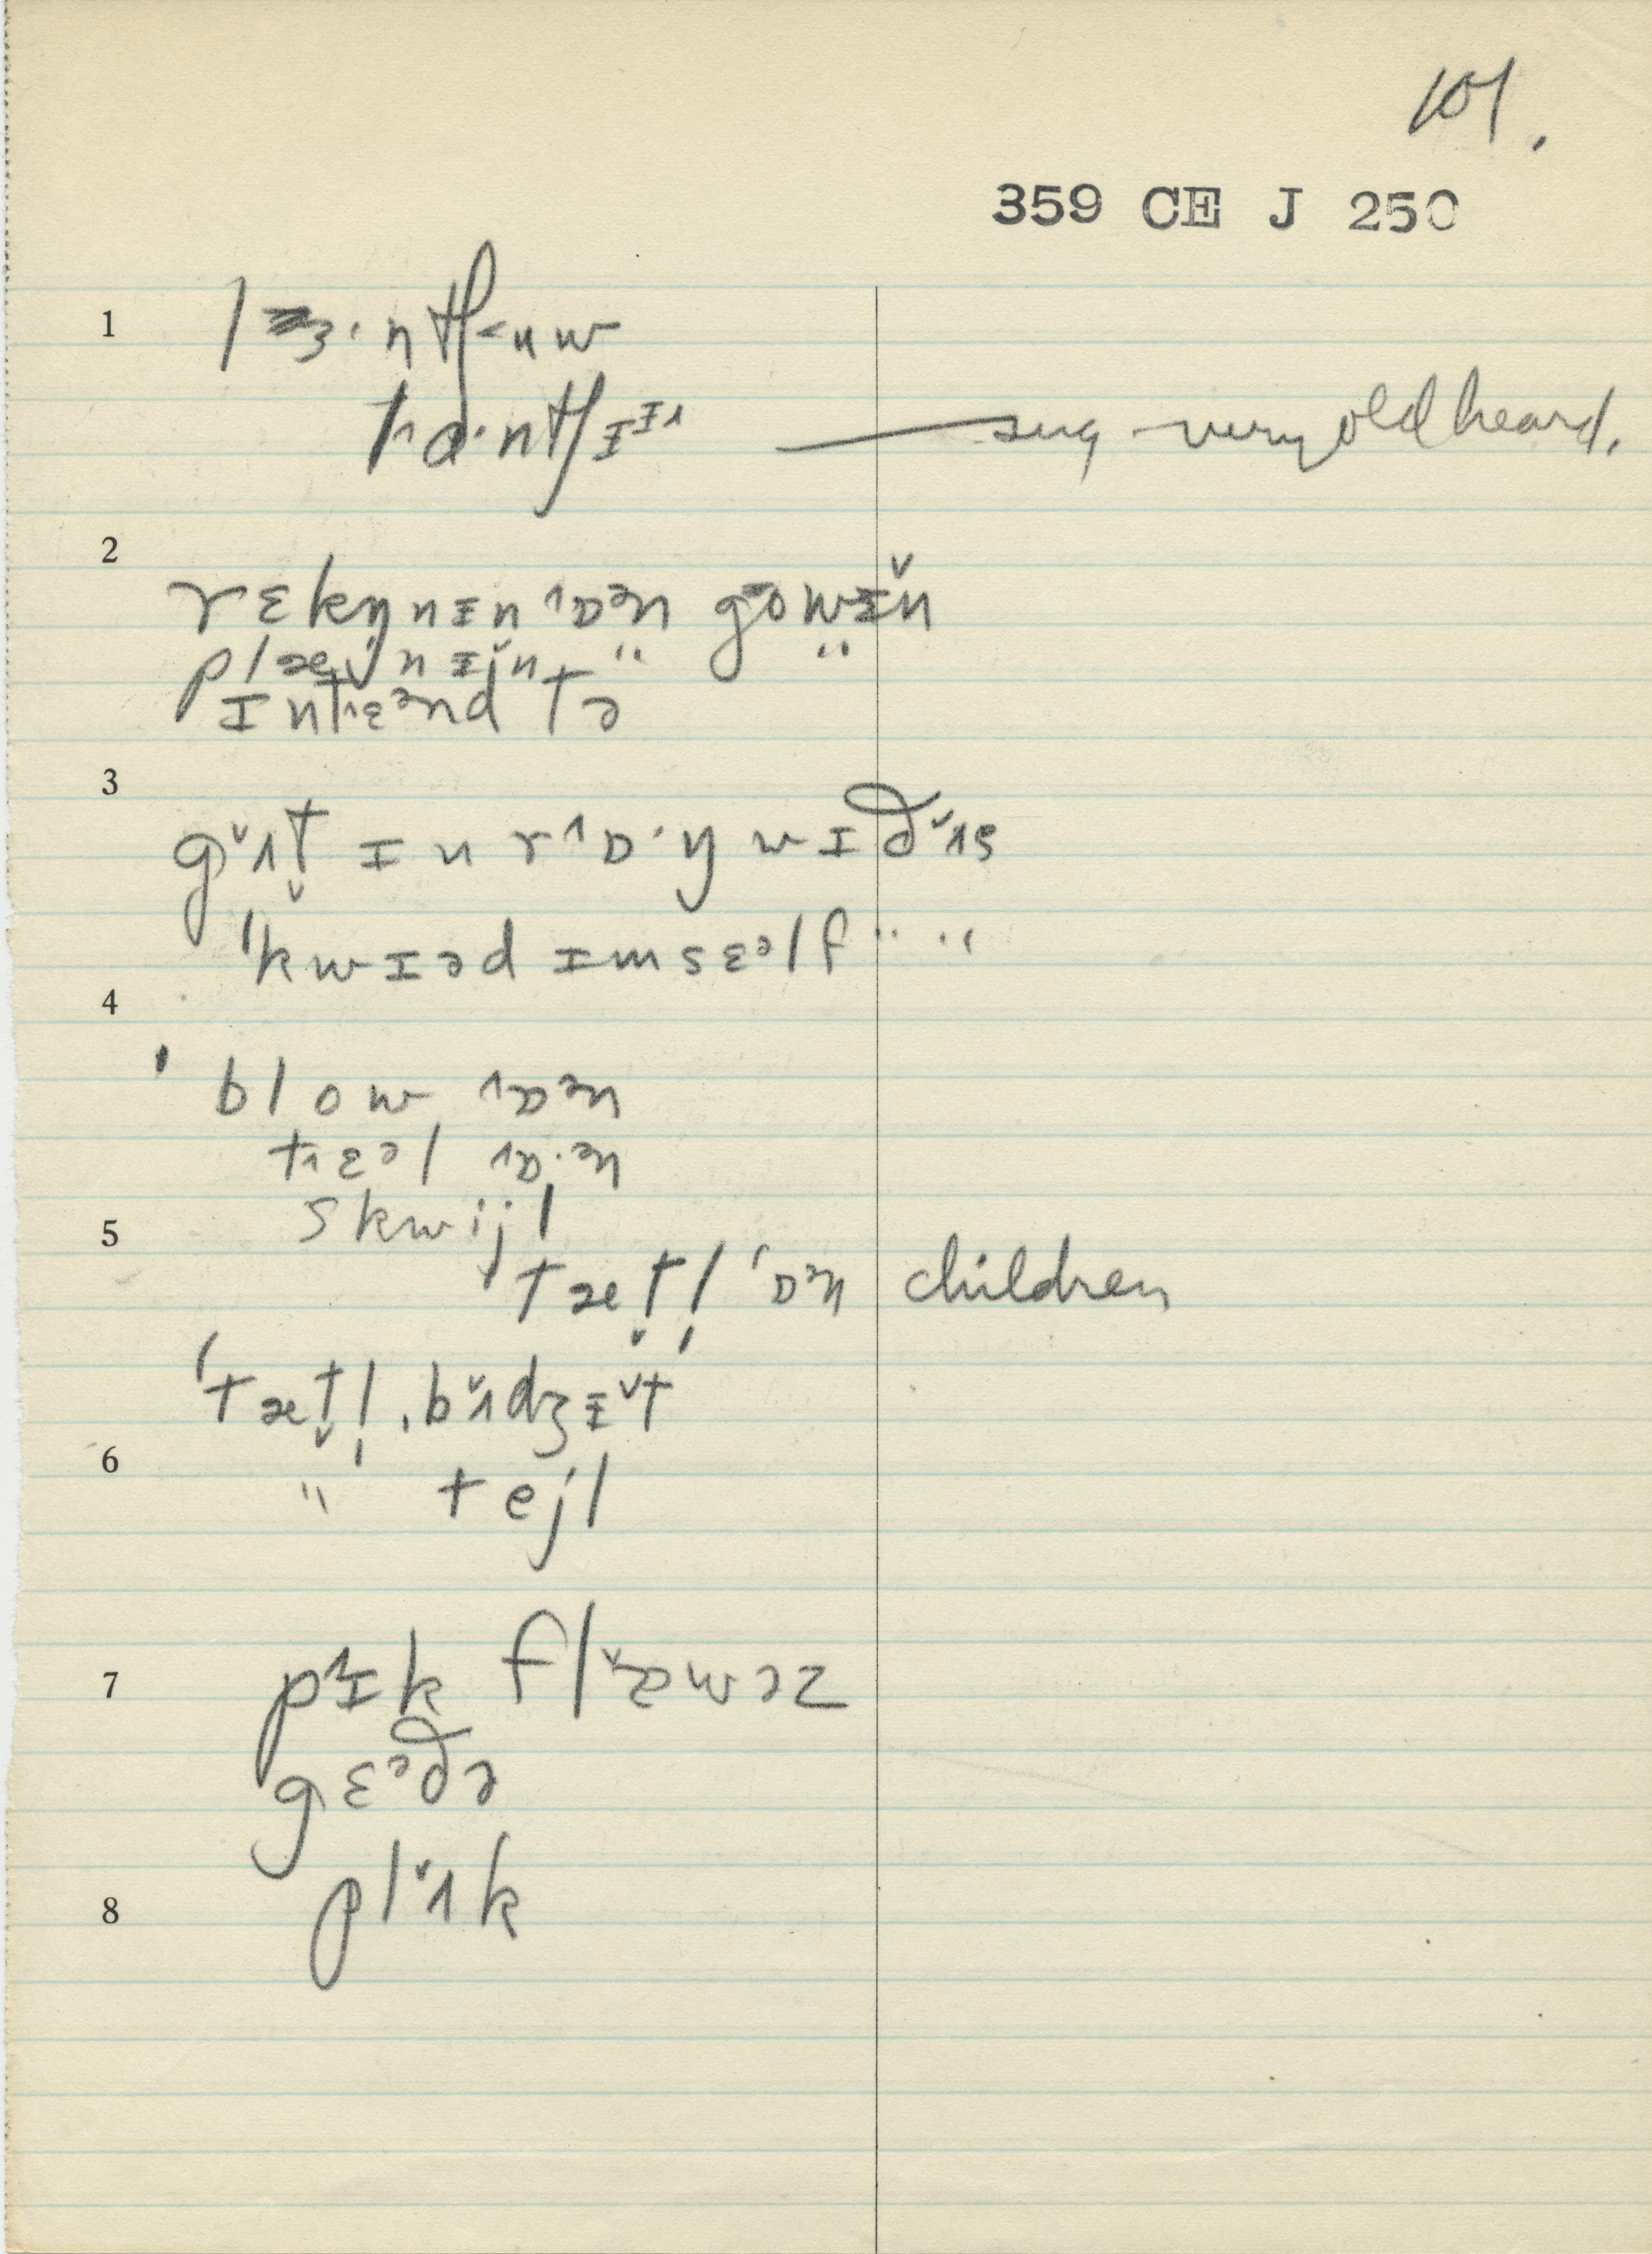 101.
359 CE J 250
1 lɜ·ntʃ˂uw
t˄ɑ·ntʃɪᶦ˄ — sug. very old heard.
2 rɛkŋnɪn ˄ɒᵊn go˂wɪ̌n
plæ̌jnɪn " "
ɪnt˄ɛᵊnd tə
3 gʌ̌t̬ ɪn r˄ɒ·ŋ wɪð ʌ̌s
ˈkwɪəd ɪmsɛᵊlf " "
4
ˈblow ˄ɒᵊn
t˄ɛᵊl ˄ɒ·ᵊn
5 skwijl
tæt̬l̩ ˈɒᵊn children
ˈtæt̬l̩ˌbʌ̌dʒɪ̌t
6 " tejl
7 p˄ɪk flæ̌wəz
gɛᵊðə
8 plʌ̌k